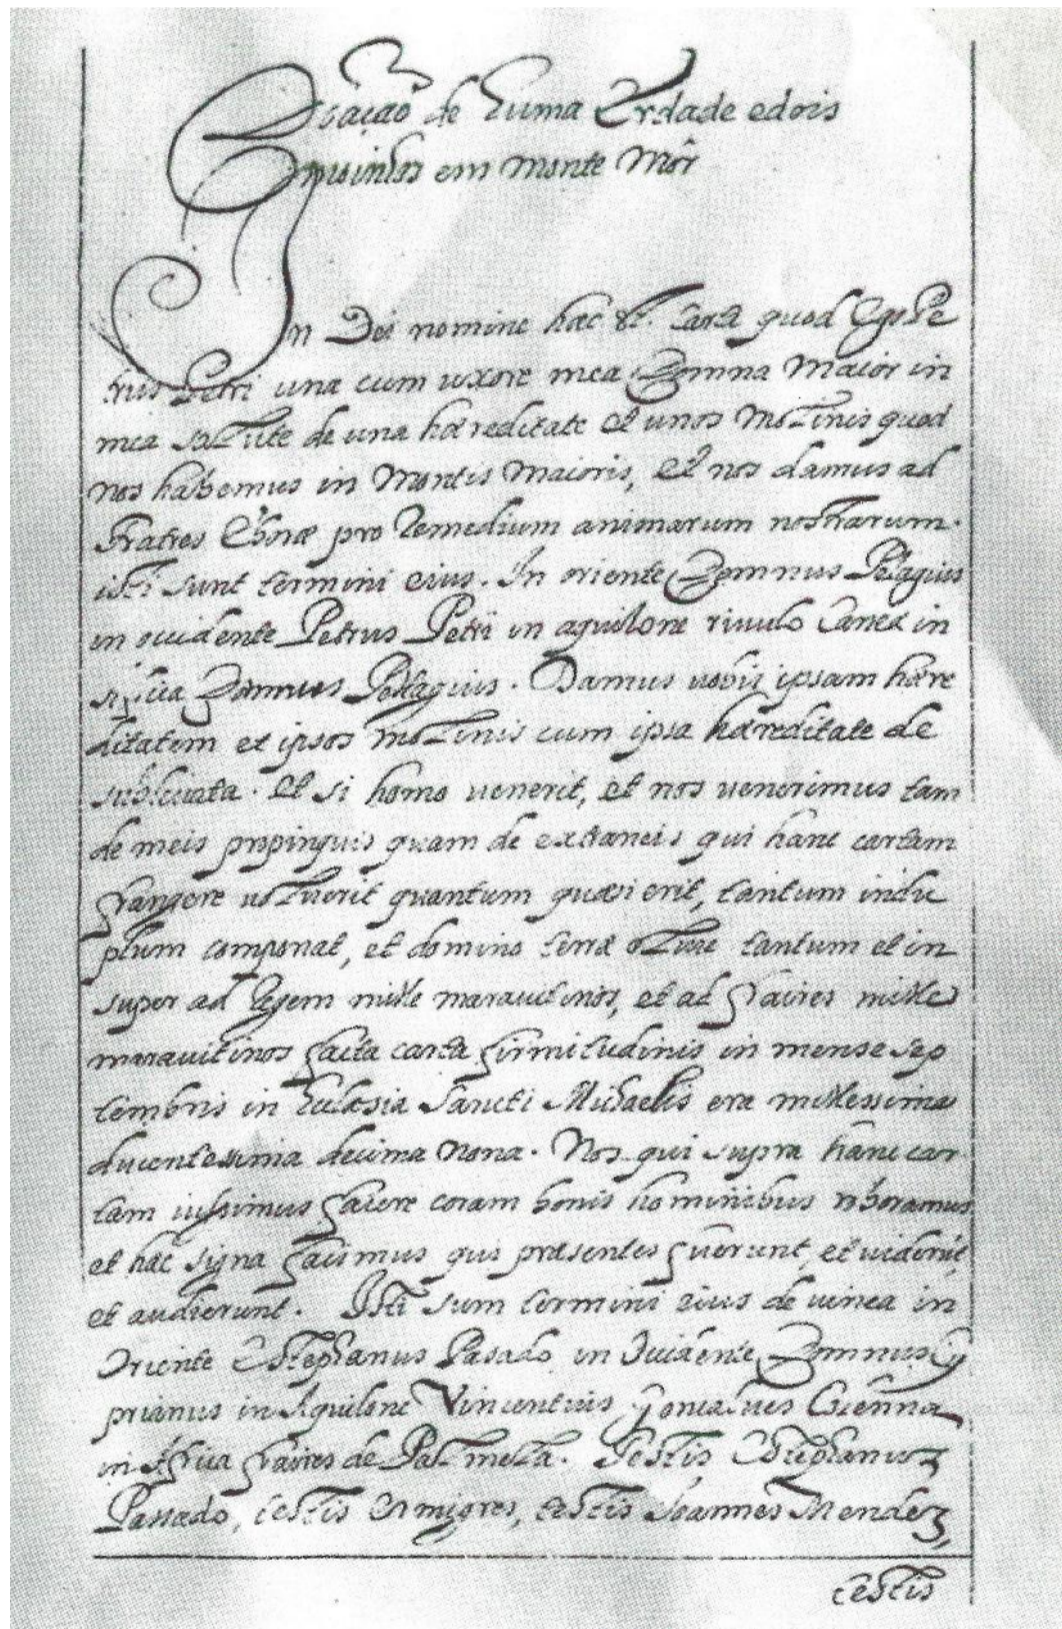 Doação de huma Erdade e dois
moinhos em Monte Mór
In Dei nomine hæc est carta quod Ego Pe
trus Petri una cum uxore mea Domna Maior in
mea salute de una hæreditate et unos molinis quod
nos habemus in Montis Maioris, et nos damus ad
Fratres Eboræ pro remedium animarum nostrarum.
isti sunt termini eius. In oriente Domnus Pelagius
in occidente Petrus Petri in aquilone riuulo Canea in
Domnus Pellagius. Damus vobis ipsam hære
ditatem et ipsos molinis cum ipsa hæreditate de
subleuata. Et si homo uenerit, et nos uenerimus tam
de meis propinquis quam de extraneis qui hanc cartam
frangere uoluerit quantum quæsierit, tantum indu
plum componat, et domino terræ tantum et in
super ad Regem mille marauitinos, et ad fratres mille
marauitinos facta carta firmitudinis in mense sep
tembris in Ecclesia Sancti Michaelis era millessima
ducentessima decima nona. Nos qui supra hanc car
tam iussimus facere coram bonis hominibus roboramus
et hæc signa facimus qui præsentes fuerunt, et uiderũt,
et audierunt. Isti sum termini eius de uinea in
Oriente Estephanus Pasado in Ocidente Domnus Cy
prianus in Aquilone Vincentius Goncalues
in Africa fratres de Pallmella. Testis Estephanus
Passado, testis Ermigres, testis Ioannes Mendez,
testis